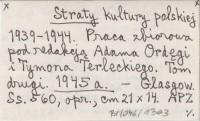 Straty kultury polskiej
1939-1944. Praca zbiorowa
pod redakcją Adama Ordęgi
i Tymona Terleckiego. Tom
drugi. 1945 a. - Glasgow.
Ss. 560, opr., cm 21 x 14. APZ